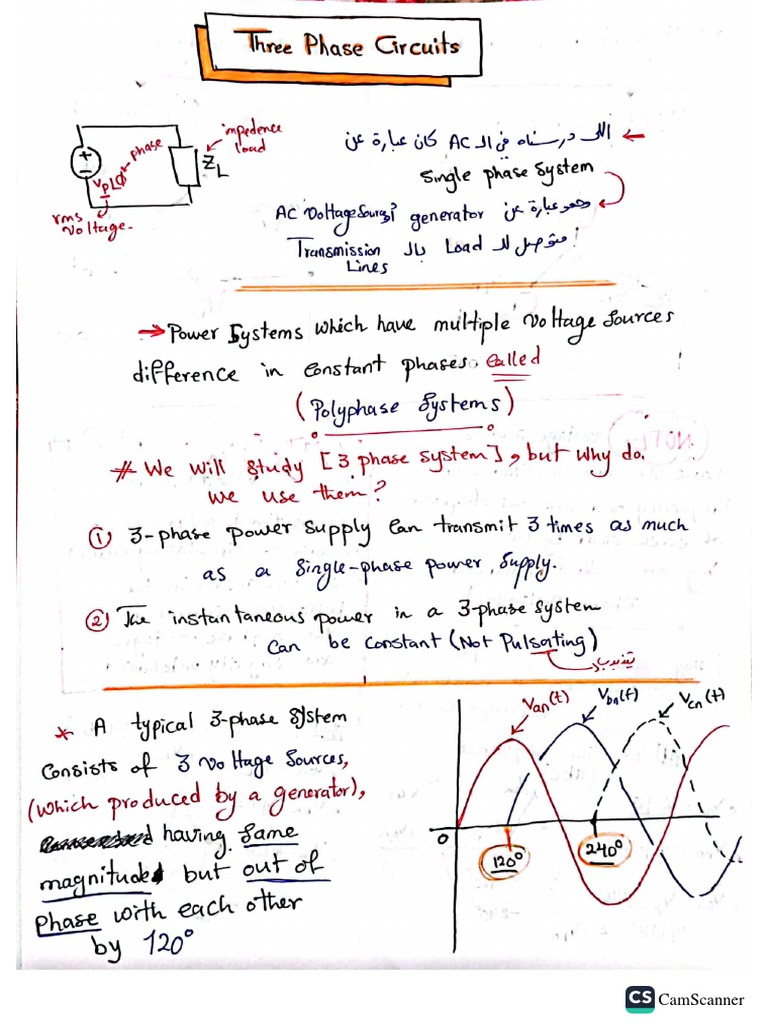 Three Phase Circuits
impedence
load
phase
Vp∠Φ
ZL
rms
Voltage.
← اللى درسناه فى الـ AC كان عبارة عن
Single phase System
وهو عبارة عن generator أو AC Voltage Source
متوصل لـ Load بالـ Transmission
Lines
→ Power Systems which have multiple Voltage Sources
difference in Constant phases. Called
(Polyphase Systems)
# We will study [3 phase system], but why do.
we use them?
① 3-phase power supply Can transmit 3 times as much
as a Single-phase power supply.
② The instantaneous power in a 3-phase system
Can be Constant (Not Pulsating)
تذبذب
* A typical 3-phase system
Consists of 3 Voltage Sources,
(which produced by a generator),
having Same
magnitude but out of
phase with each other
by 120°
Van(t)
Vbn(t)
Vcn(t)
0
120°
240°
CS CamScanner